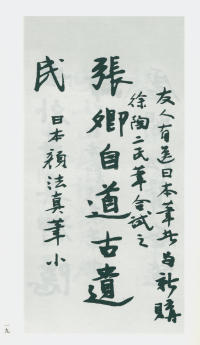 友人有送日本筆者与新購
徐陶二民筆合試之
張卿自道古遺
民
日本頹法真筆小
一九